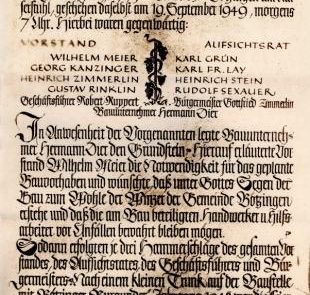 serstuhl, geschehen daselbst am 19. September 1949, morgens
7 Uhr. Hierbei waren gegenwärtig:
VORSTAND AUFSICHTSRAT
WILHELM MEIER KARL GRÜN
GEORG KANZINGER KARL FR. LAY
HEINRICH ZIMMERLIN HEINRICH STEIN
GUSTAV RINKLIN RUDOLF SEXAUER
Geschäftsführer Robert Ruppert Bürgermeister Gottfried Zimmerlin
Bauunternehmer Hermann Dier
In Anwesenheit der Vorgenannten legte Bauunterneh-
mer Hermann Dier den Grundstein. Hierauf erläuterte Vor-
stand Wilhelm Meier die Notwendigkeit für das geplante
Bauvorhaben und wünschte, daß unter Gottes Segen der
Bau zum Wohle der Winzer der Gemeinde Bötzingen
erstehe und daß die am Bau beteiligten Handwerker u. Hilfs-
arbeiter vor Unfällen bewahrt bleiben mögen.
Sodann erfolgten je drei Hammerschläge des gesamten Vor-
standes, des Aufsichtsrates, des Geschäftsführers und Bür-
germeisters. Nach einem kleinen Trunk auf der Baustelle
mit Bötzinger